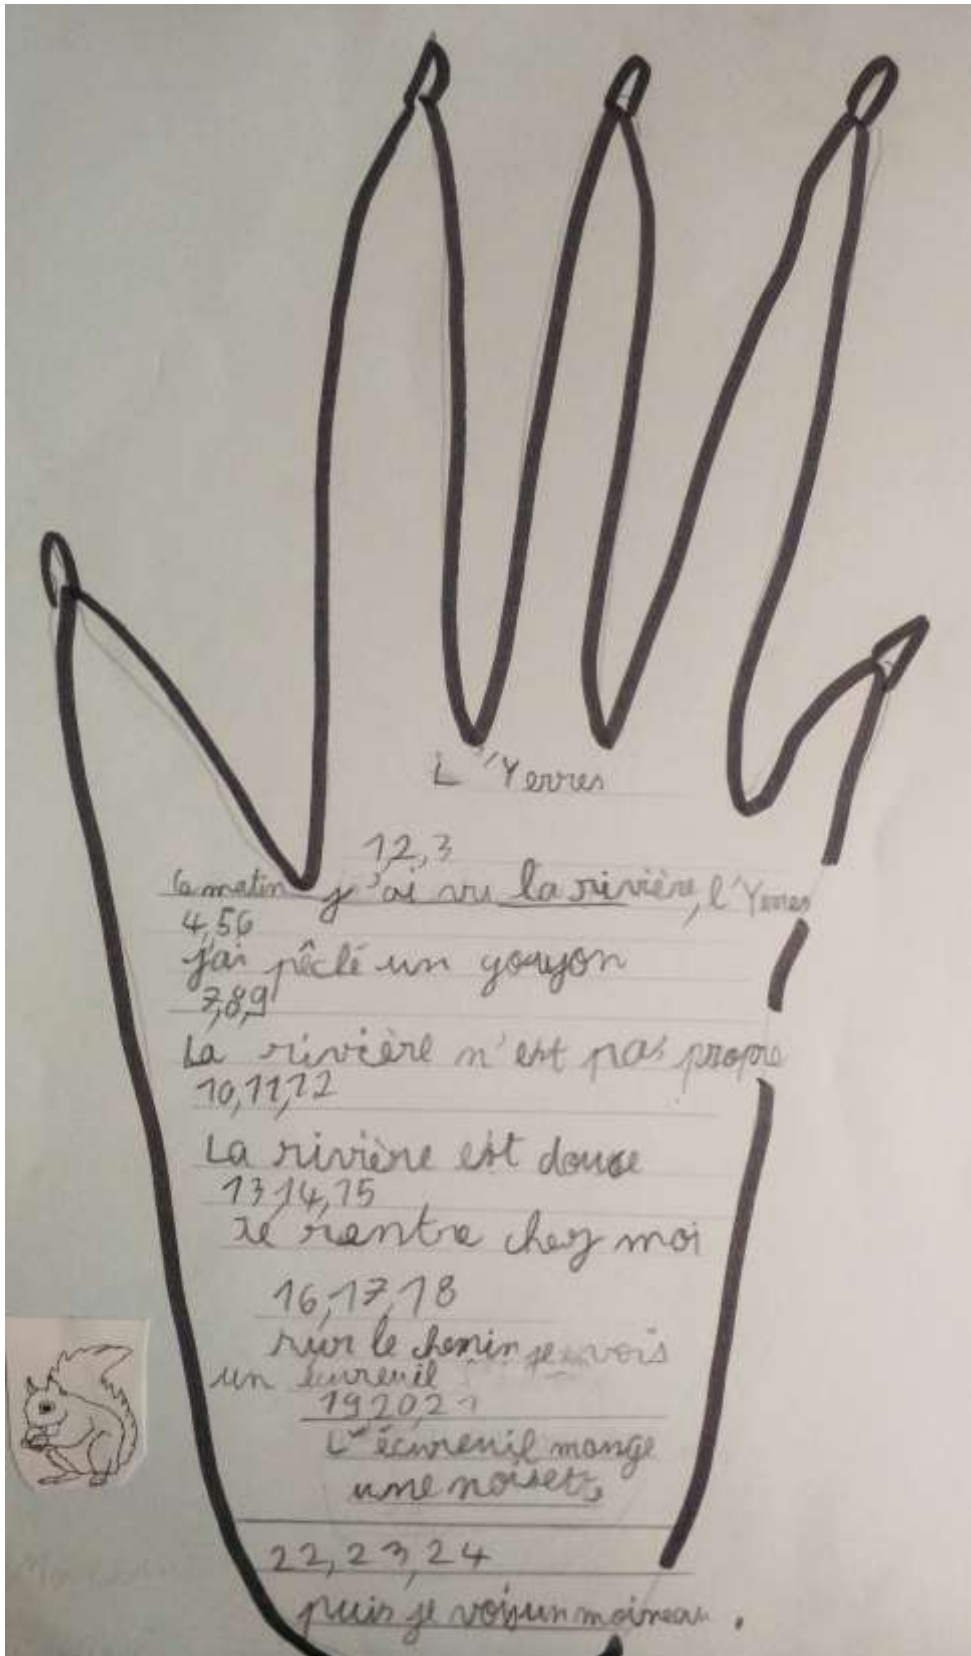 L'Yerres
1,2,3
le matin j'ai vu la rivière, l'Yerres
4,56
j'ai pêché un goujon
7,8,9
La rivière n'est pas propre
10,11,12
La rivière est douce
13,14,15
Je rentre chez moi
16,17,18
sur le chemin je vois
un écureuil
19 20,21
L'écureuil mange
une noisette
22,23,24
puis je vois un moineau.